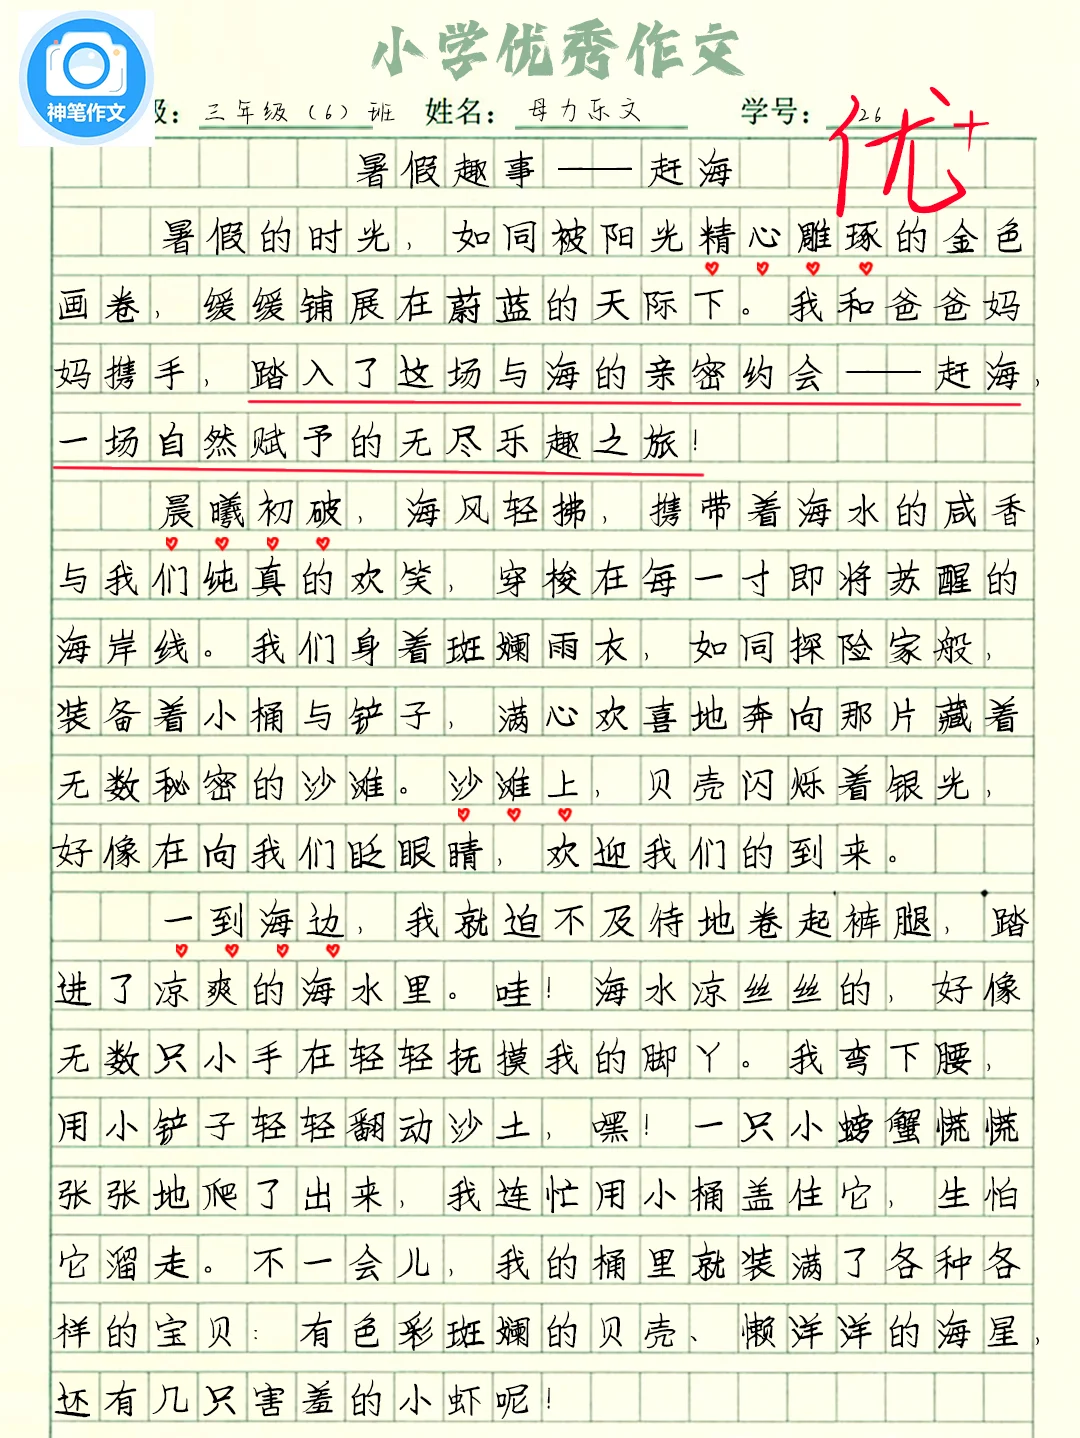 小学优秀作文
神笔作文
级：三年级（6）班 姓名：母力乐文 学号：26
优+
暑假趣事——赶海
暑假的时光，如同被阳光精心雕琢的金色
画卷，缓缓铺展在蔚蓝的天际下。我和爸爸妈
妈携手，踏入了这场与海的亲密约会——赶海，
一场自然赋予的无尽乐趣之旅！
晨曦初破，海风轻拂，携带着海水的咸香
与我们纯真的欢笑，穿梭在每一寸即将苏醒的
海岸线。我们身着斑斓雨衣，如同探险家般，
装备着小桶与铲子，满心欢喜地奔向那片藏着
无数秘密的沙滩。沙滩上，贝壳闪烁着银光，
好像在向我们眨眼睛，欢迎我们的到来。
一到海边，我就迫不及待地卷起裤腿，踏
进了凉爽的海水里。哇！海水凉丝丝的，好像
无数只小手在轻轻抚摸我的脚丫。我弯下腰，
用小铲子轻轻翻动沙土，嘿！一只小螃蟹慌慌
张张地爬了出来，我连忙用小桶盖住它，生怕
它溜走。不一会儿，我的桶里就装满了各种各
样的宝贝：有色彩斑斓的贝壳、懒洋洋的海星，
还有几只害羞的小虾呢！